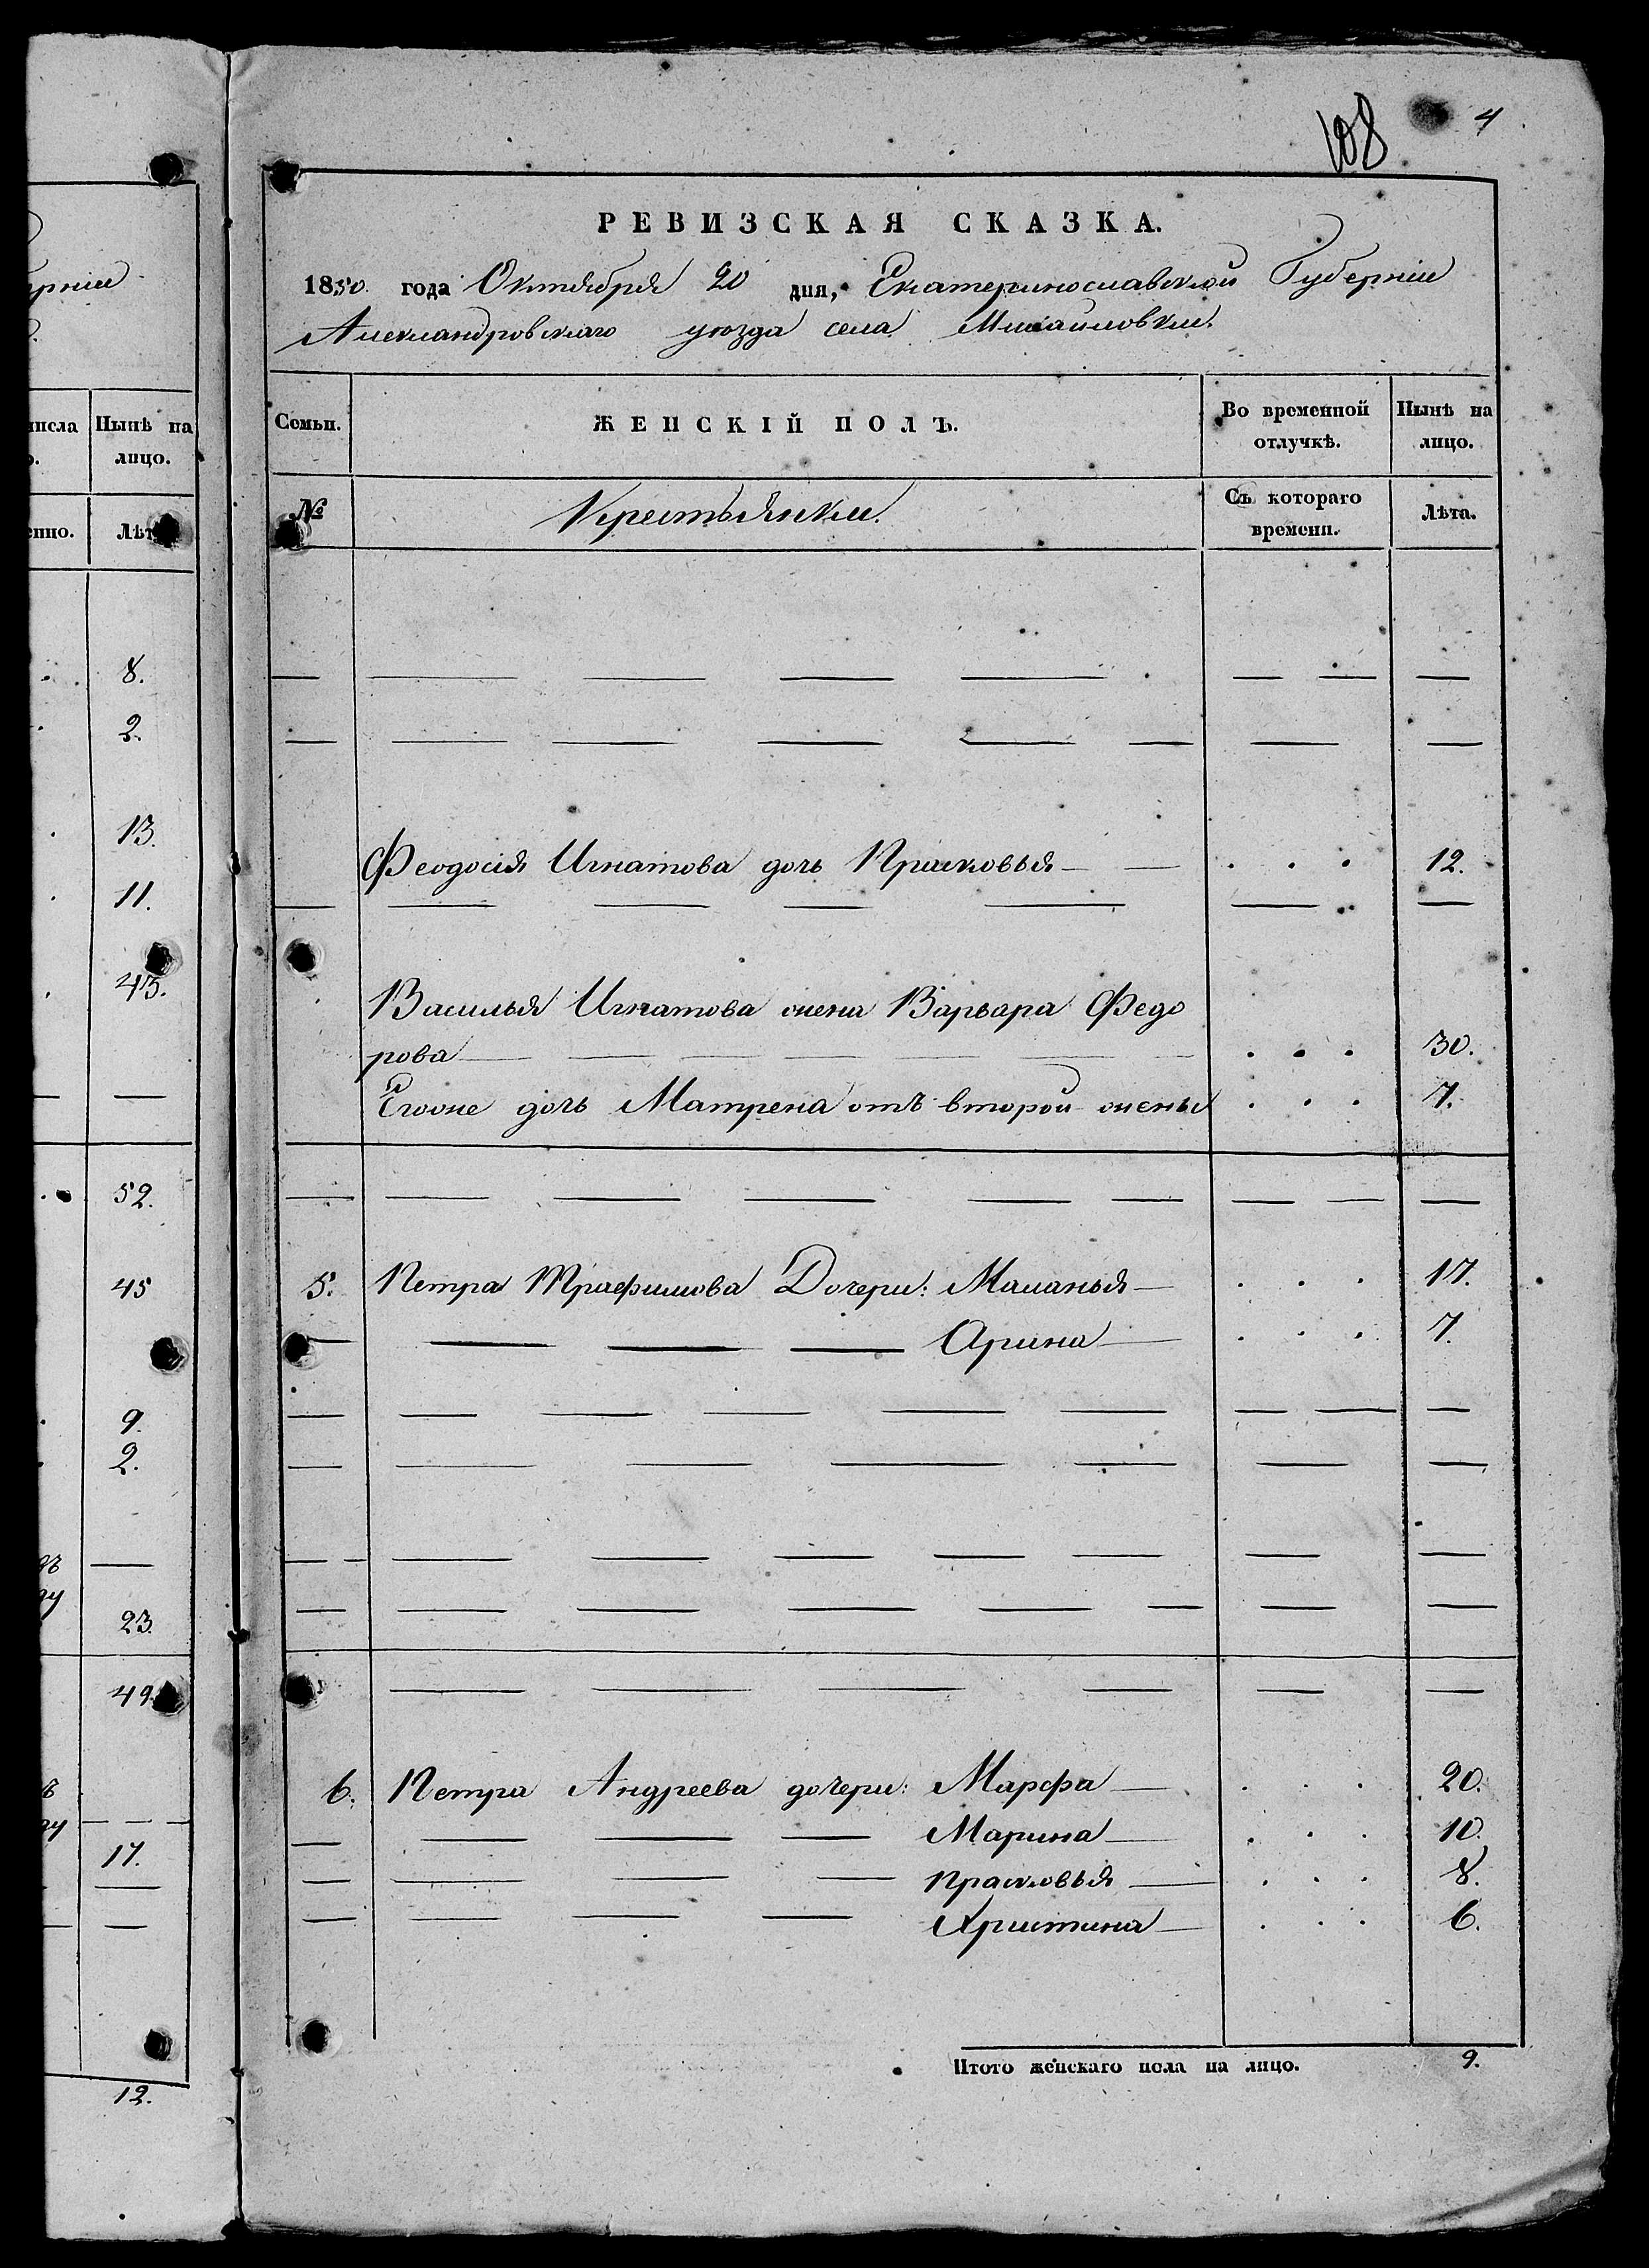 108 4
РЕВИЗСКАЯ СКАЗКА.
1850. года Октября 20 дня, Екатеринославской Губерніи
Александровскаго уѣзда села Михайловки.
Семьи. ЖЕНСКІЙ ПОЛЪ. Во временной отлучкѣ. Нынѣ на лицо.
№ Крестьянки. Съ котораго времени. Лѣта.
Феодосія Игнатова дочь Прасковья 12.
Василья Игнатова жена Варвара Федо
рова 30.
Егоже дочь Матрена отъ второй жены 7.
5. Петра Трафимова Дочери: Маланья 17.
Арина 7.
6. Петра Андреева дочери: Марфа 20.
Марина 10.
Прасковья 8.
Христина 6.
Итого женскаго пола на лицо. 9.
Нынѣ на
лицо.
8.
2.
13.
11.
43.
52.
45
9.
2.
23.
49.
17.
12.